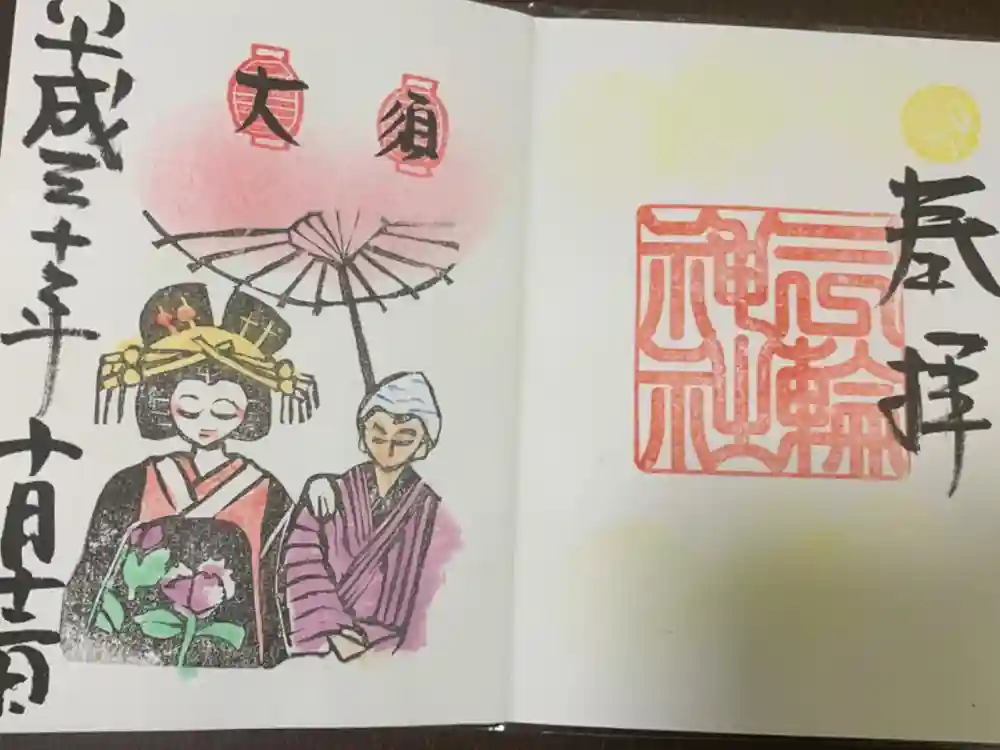 奉拝
三輪
神社
大須
平成三十年
十月十二日